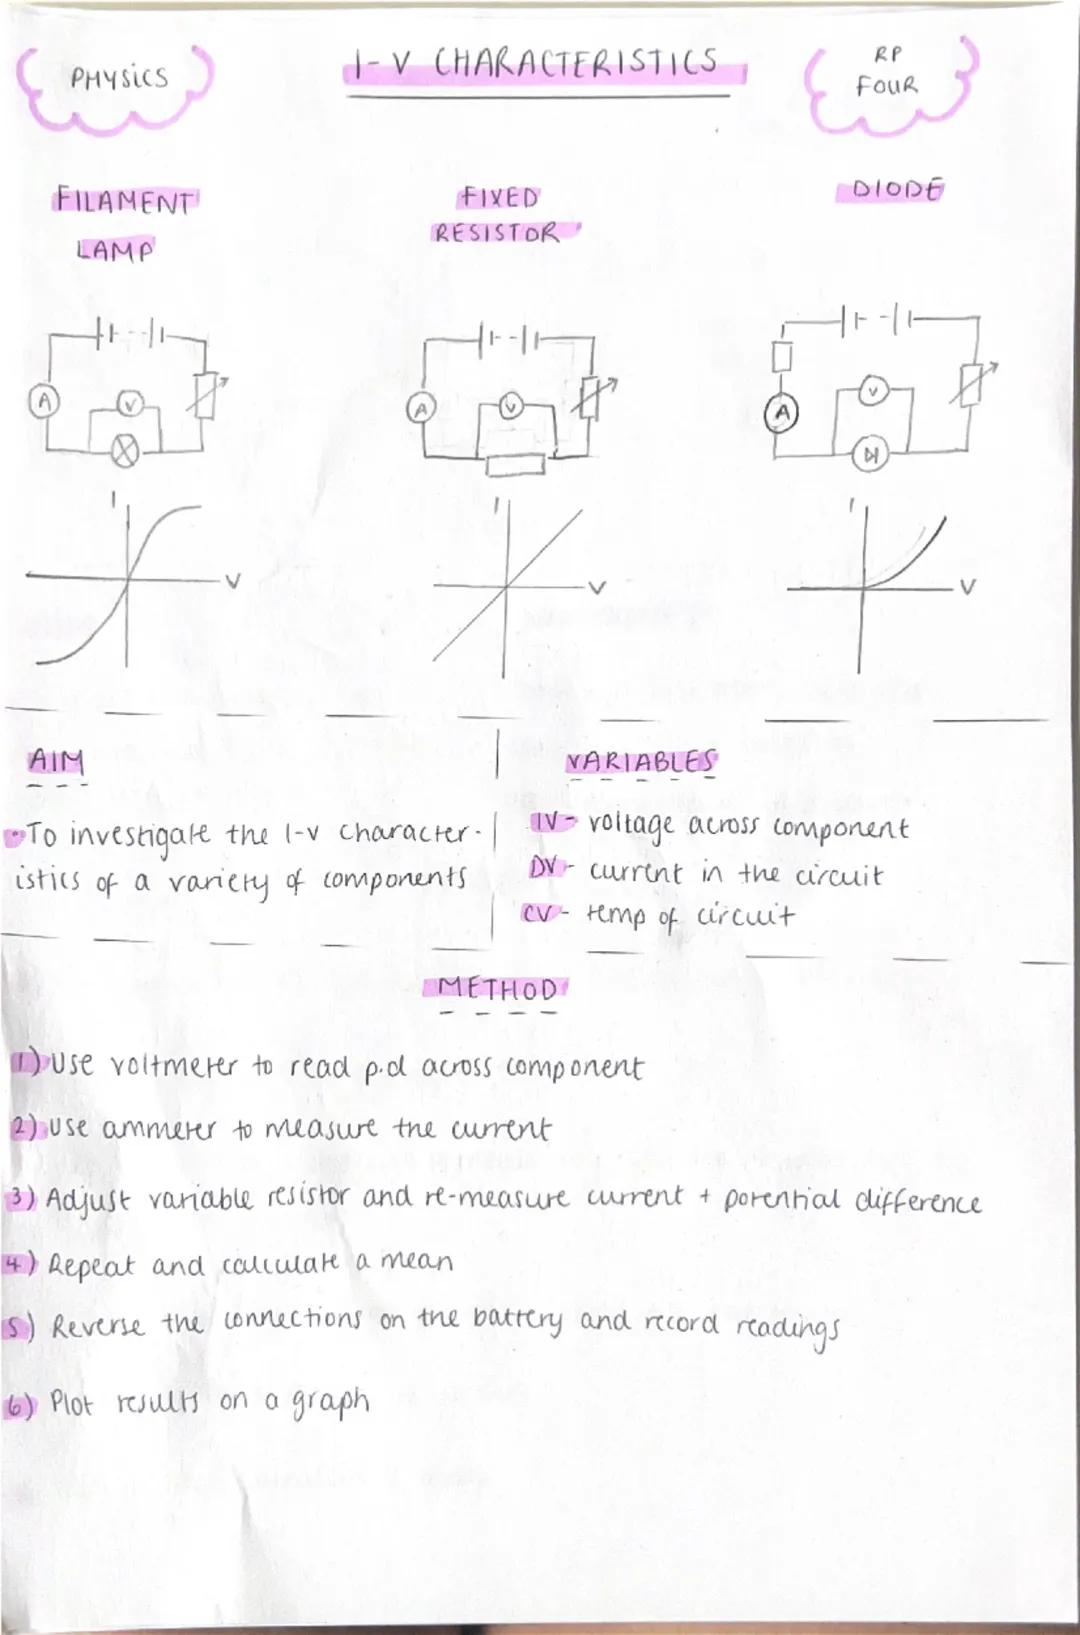 PHYSICS
I-V CHARACTERISTICS
RP
FOUR
FILAMENT
LAMP
FIXED
RESISTOR
DIODE
A
V
A
V
A
V
I
V
I
V
I
V
AIM
•To investigate the I-V character-
istics of a variety of components
VARIABLES
IV - voltage across component
DV - current in the circuit
CV - temp of circuit
METHOD
1) Use voltmeter to read p.d across component
2) Use ammeter to measure the current
3) Adjust variable resistor and re-measure current + potential difference
4) Repeat and calculate a mean
5) Reverse the connections on the battery and record readings
6) Plot results on a graph